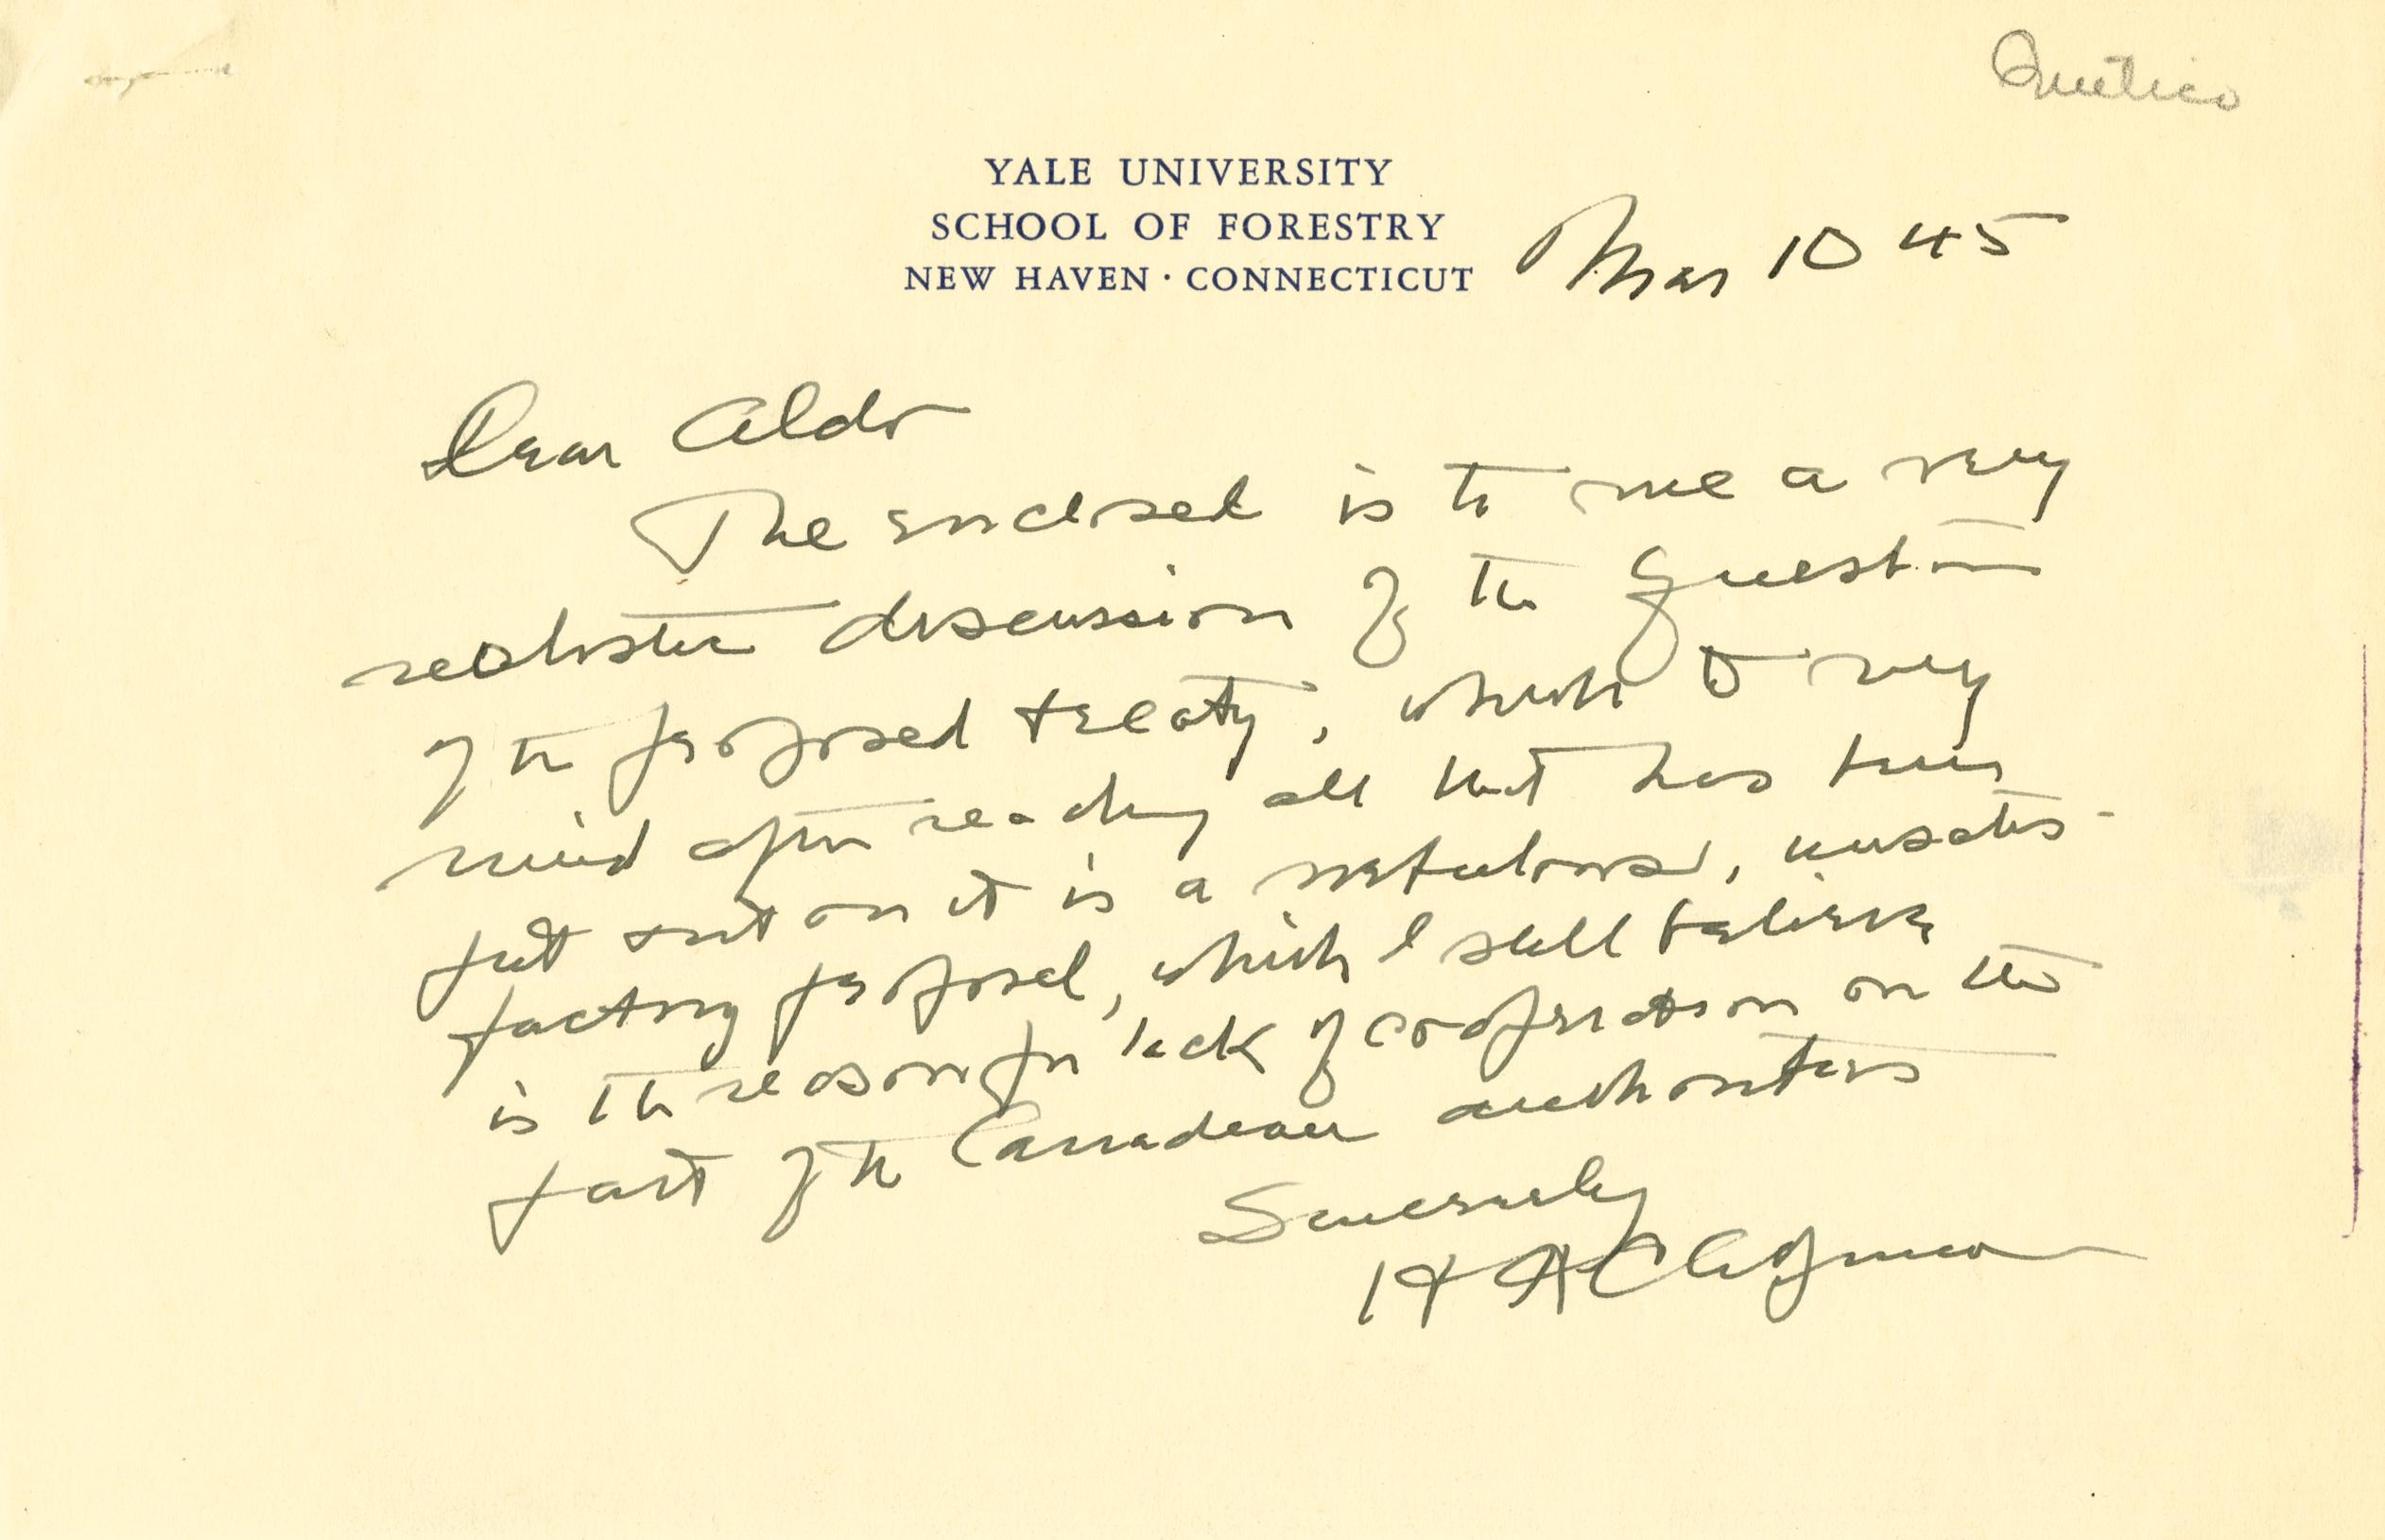 Quetico
YALE UNIVERSITY
SCHOOL OF FORESTRY
NEW HAVEN · CONNECTICUT
Mar 10 45
Dear Aldo
The enclosed is to me a very
realistic discussion of the question
of the proposed treaty, which to my
mind after reading all that has been
put out on it is a nebulous, unsatis-
factory proposal, which I still believe
is the reason for lack of cooperation on the
part of the Canadian authorities
Sincerely
H H Chapman